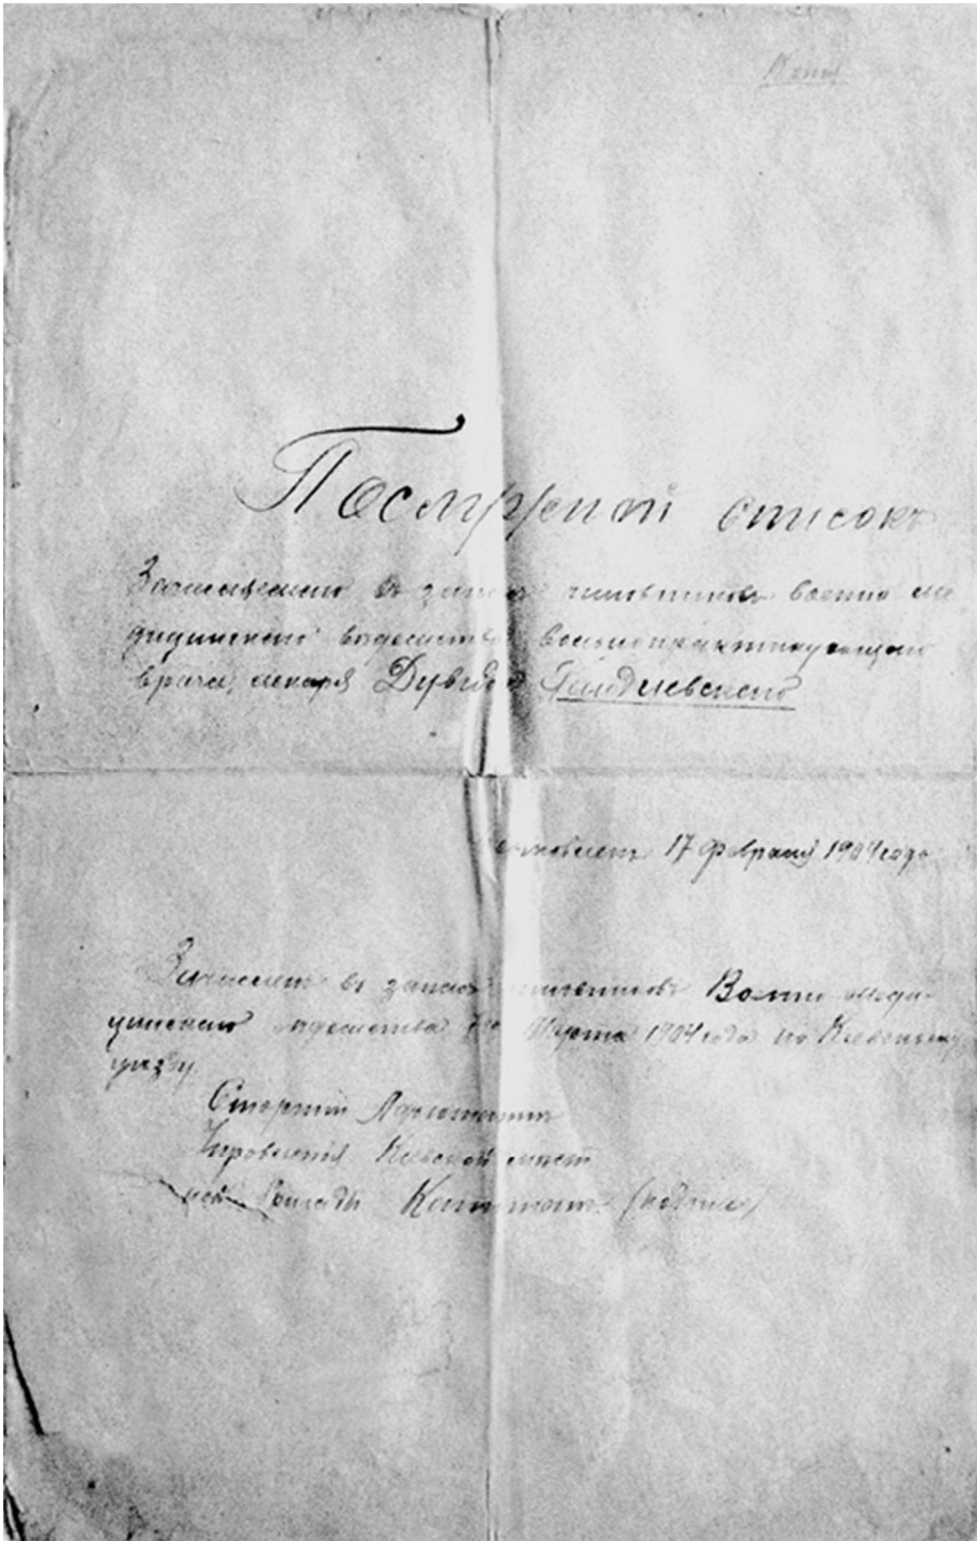 Послужной списокъ
Зачисленнаго въ запасъ чиновниковъ военно ме
дицинскаго вѣдомства вольнопрактикующаго
врача, лекаря Дувида
17 Февраля 1904 года
Зачисленъ въ запасъ чиновниковъ Военно меди-
цинскаго вѣдомства Марта 1904 года по Кіевскому
уѣзду
Старшій Адъютантъ
Управленія Кіевской мѣст
ной бригады Капитанъ (подпись)